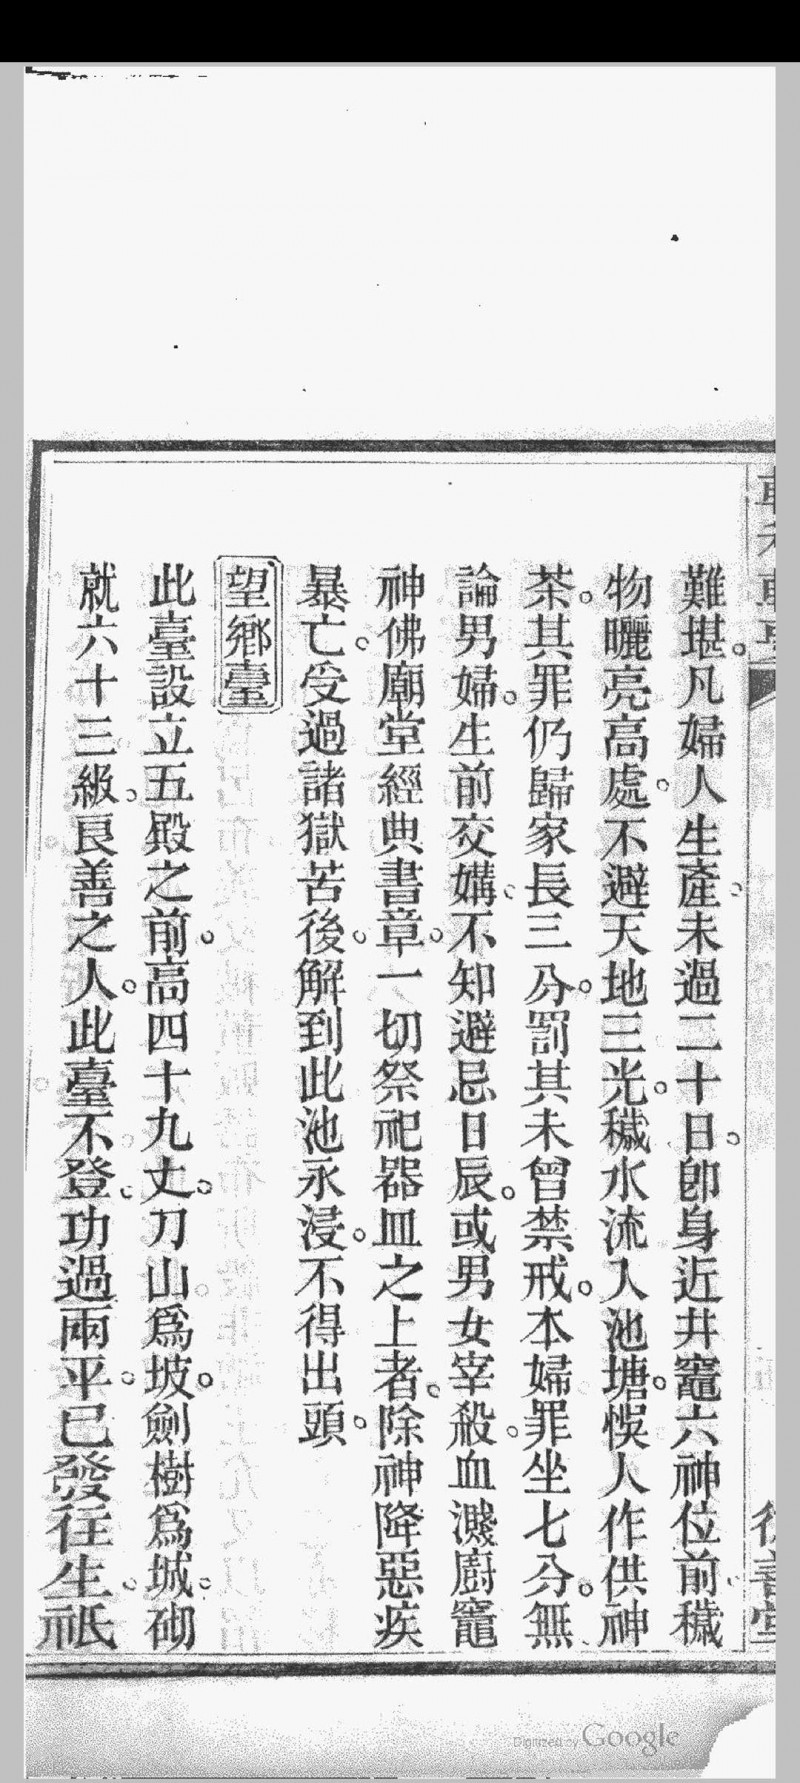 難堪。凡婦人生產。未過二十日。卽身近井竈六神位前。穢
物曬亮高處。不避天地三光。穢水流入池塘。悞人作供神
茶。其罪仍歸家長三分。罰其未曾禁戒。本婦罪坐七分。無
論男婦。生前交媾。不知避忌日辰。或男女宰殺。血濺廚竈
神佛廟堂經典書章。一切祭祀器皿之上者。除神降惡疾
暴亡。受過諸獄苦後。解到此池永浸。不得出頭。
望鄉臺
此臺設立五殿之前。高四十九丈。刀山爲坡。劍樹爲城。砌
就六十三級。良善之人。此臺不登。功過兩平。已發往生。祇
Digitized by Google